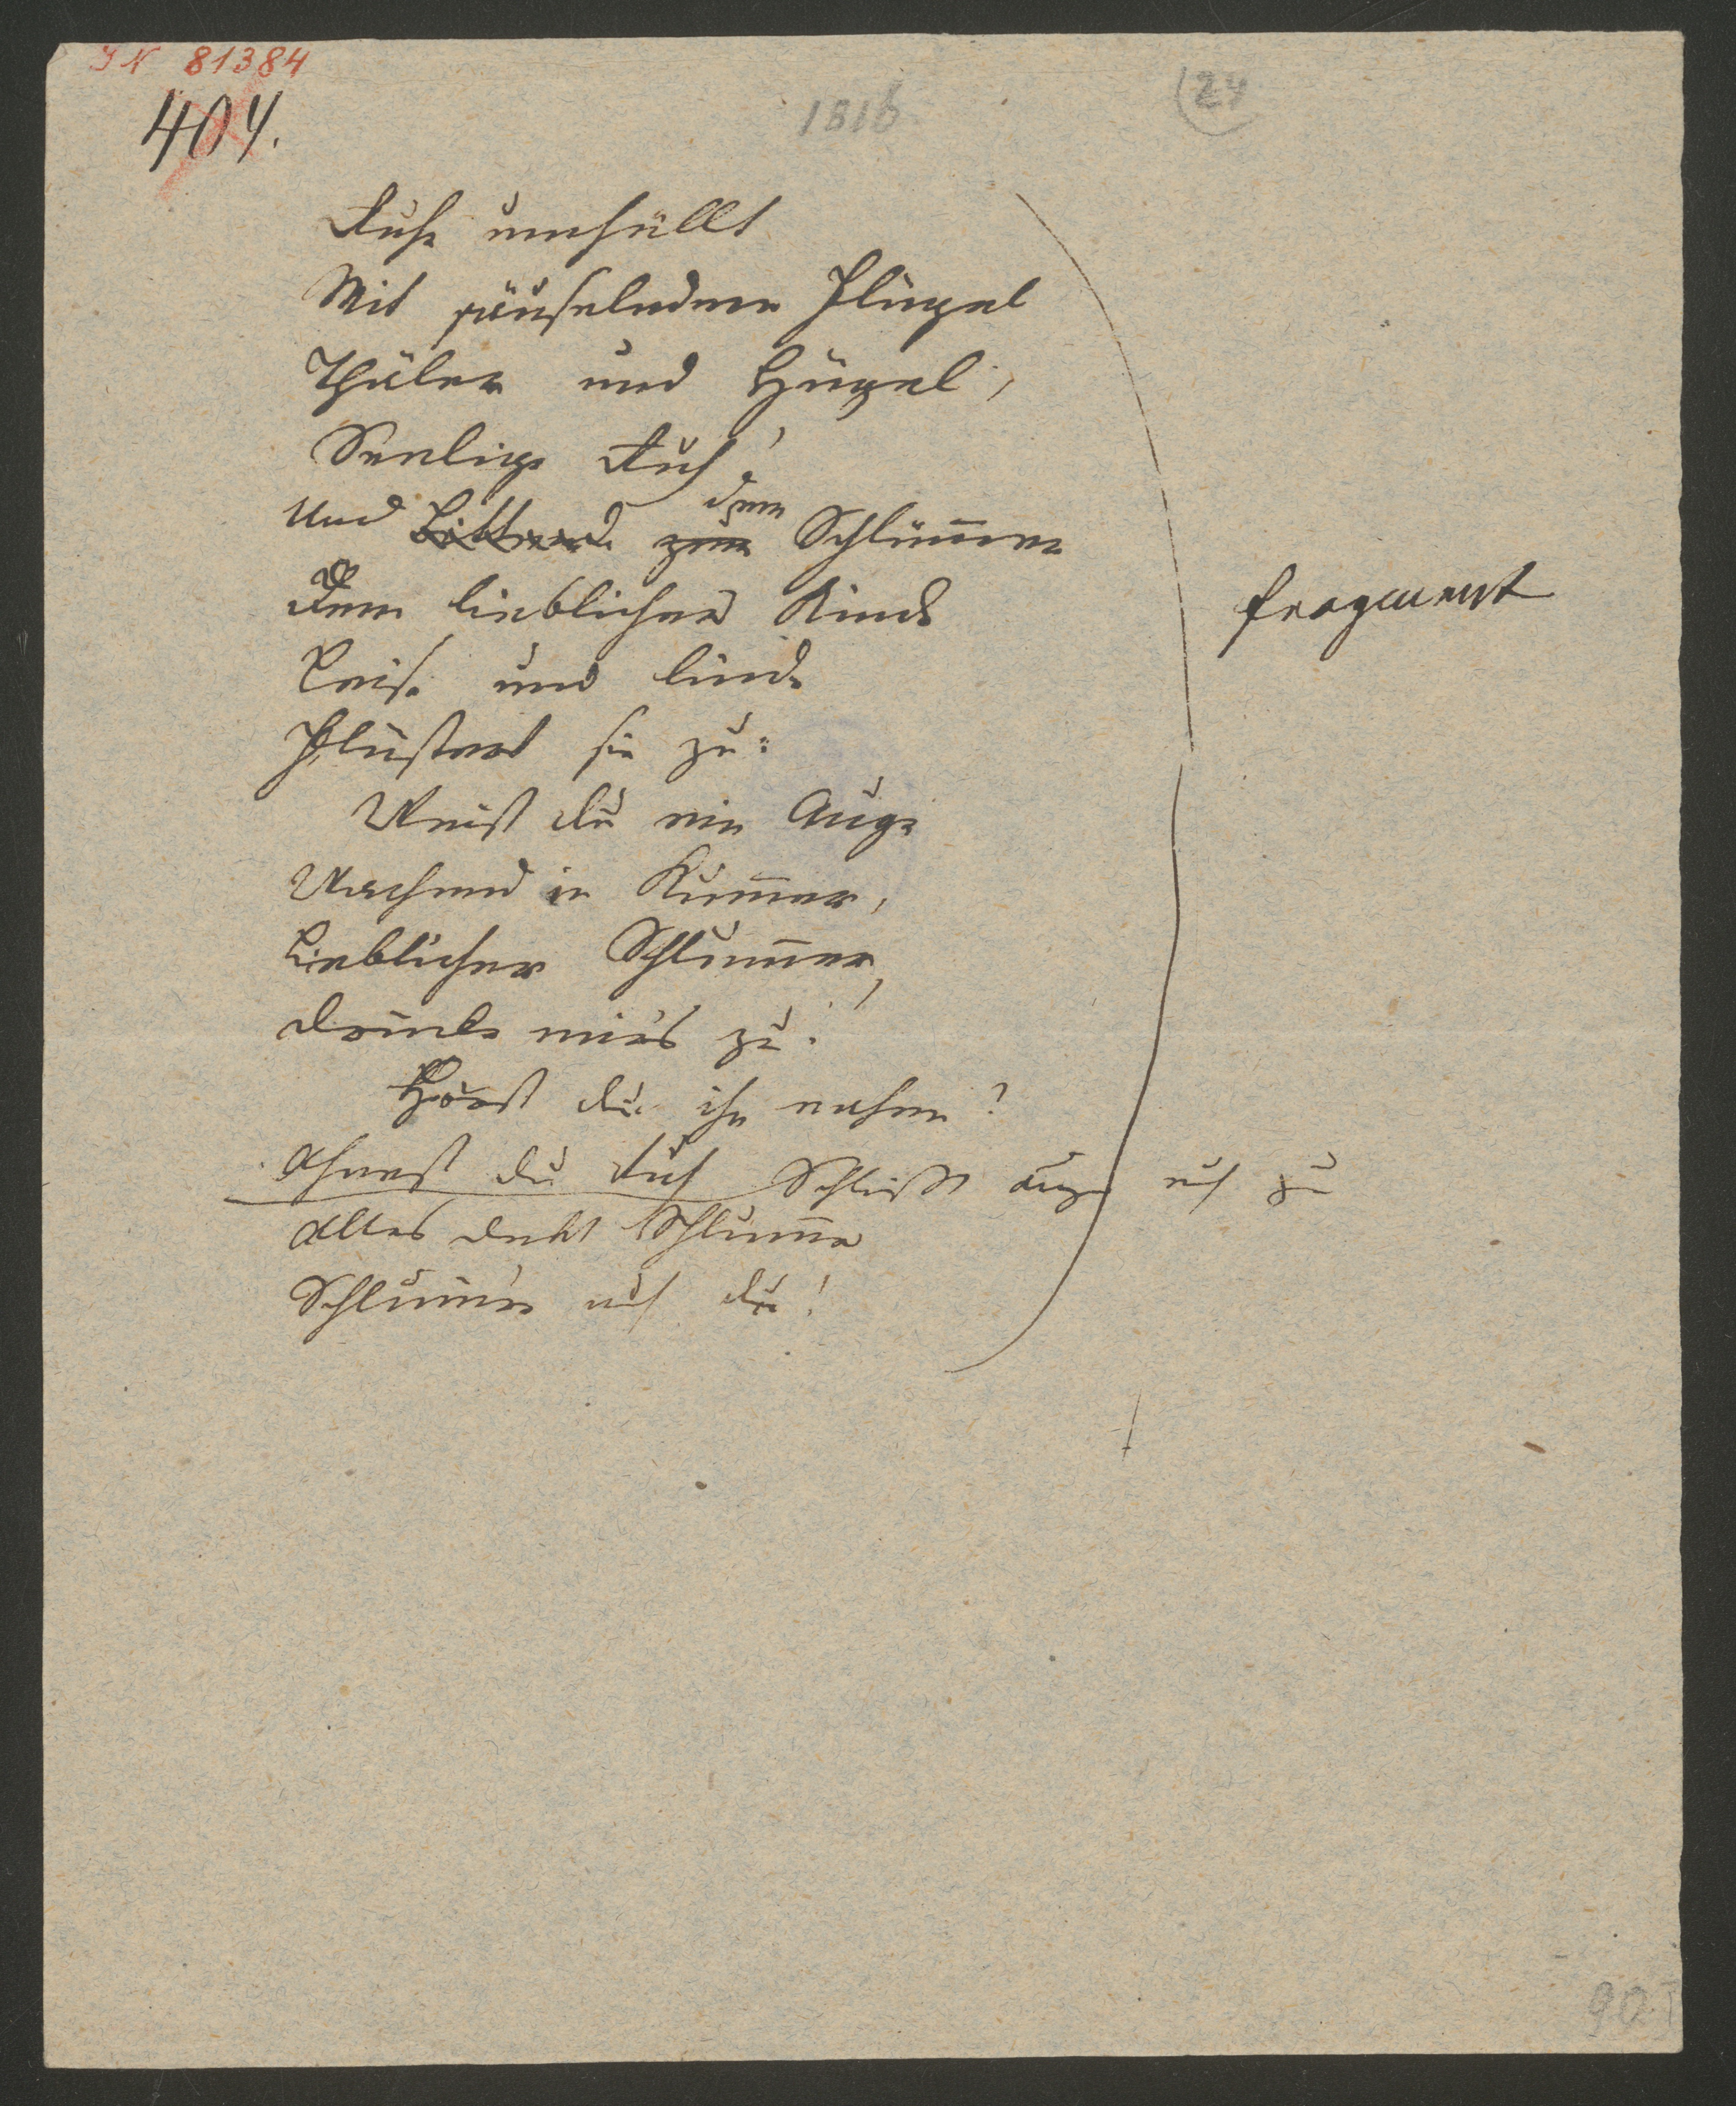 IN 81384
404.
1816
(24
Ruhe umhüllt
Mit säuselndem Flügel
Thäler und Hügel,
Seelige Ruh!
Und Bittend zum dem Schlummer
Dem lieblichen Kinde
Leise und linde
Flüstert sie zu:
Weist du ein Auge
Wachend in Kummer,
Lieblicher Schlummer,
Drücke mir's zu!
fragment
Hörst du ihn nahen?
Ahnest du Ruh Schließt Auge auch zu
Alles deckt Schlummer
Schlummre auch du!
90